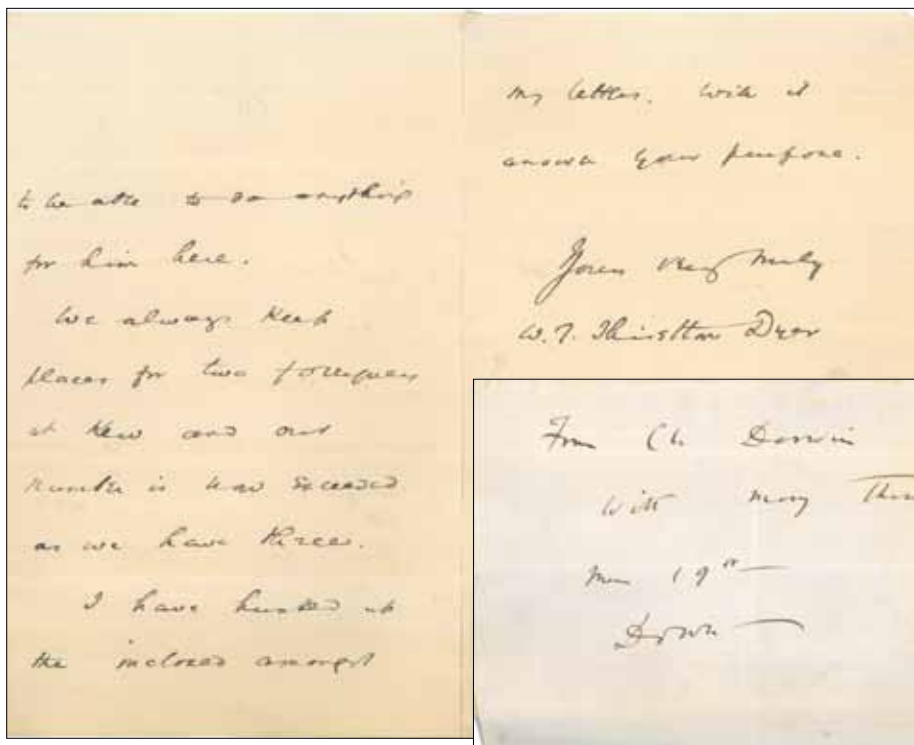 to be able to do anything
for him here.
We always keep
places for two foreigners
at Kew and our
number is now exceeded
as we have three.
I have hunted up
the inclosed amongst
my letters. Will it
answer your purpose.
Yours very truly
W. T. Thiselton Dyer
From Ch. Darwin
with many
19th
Down